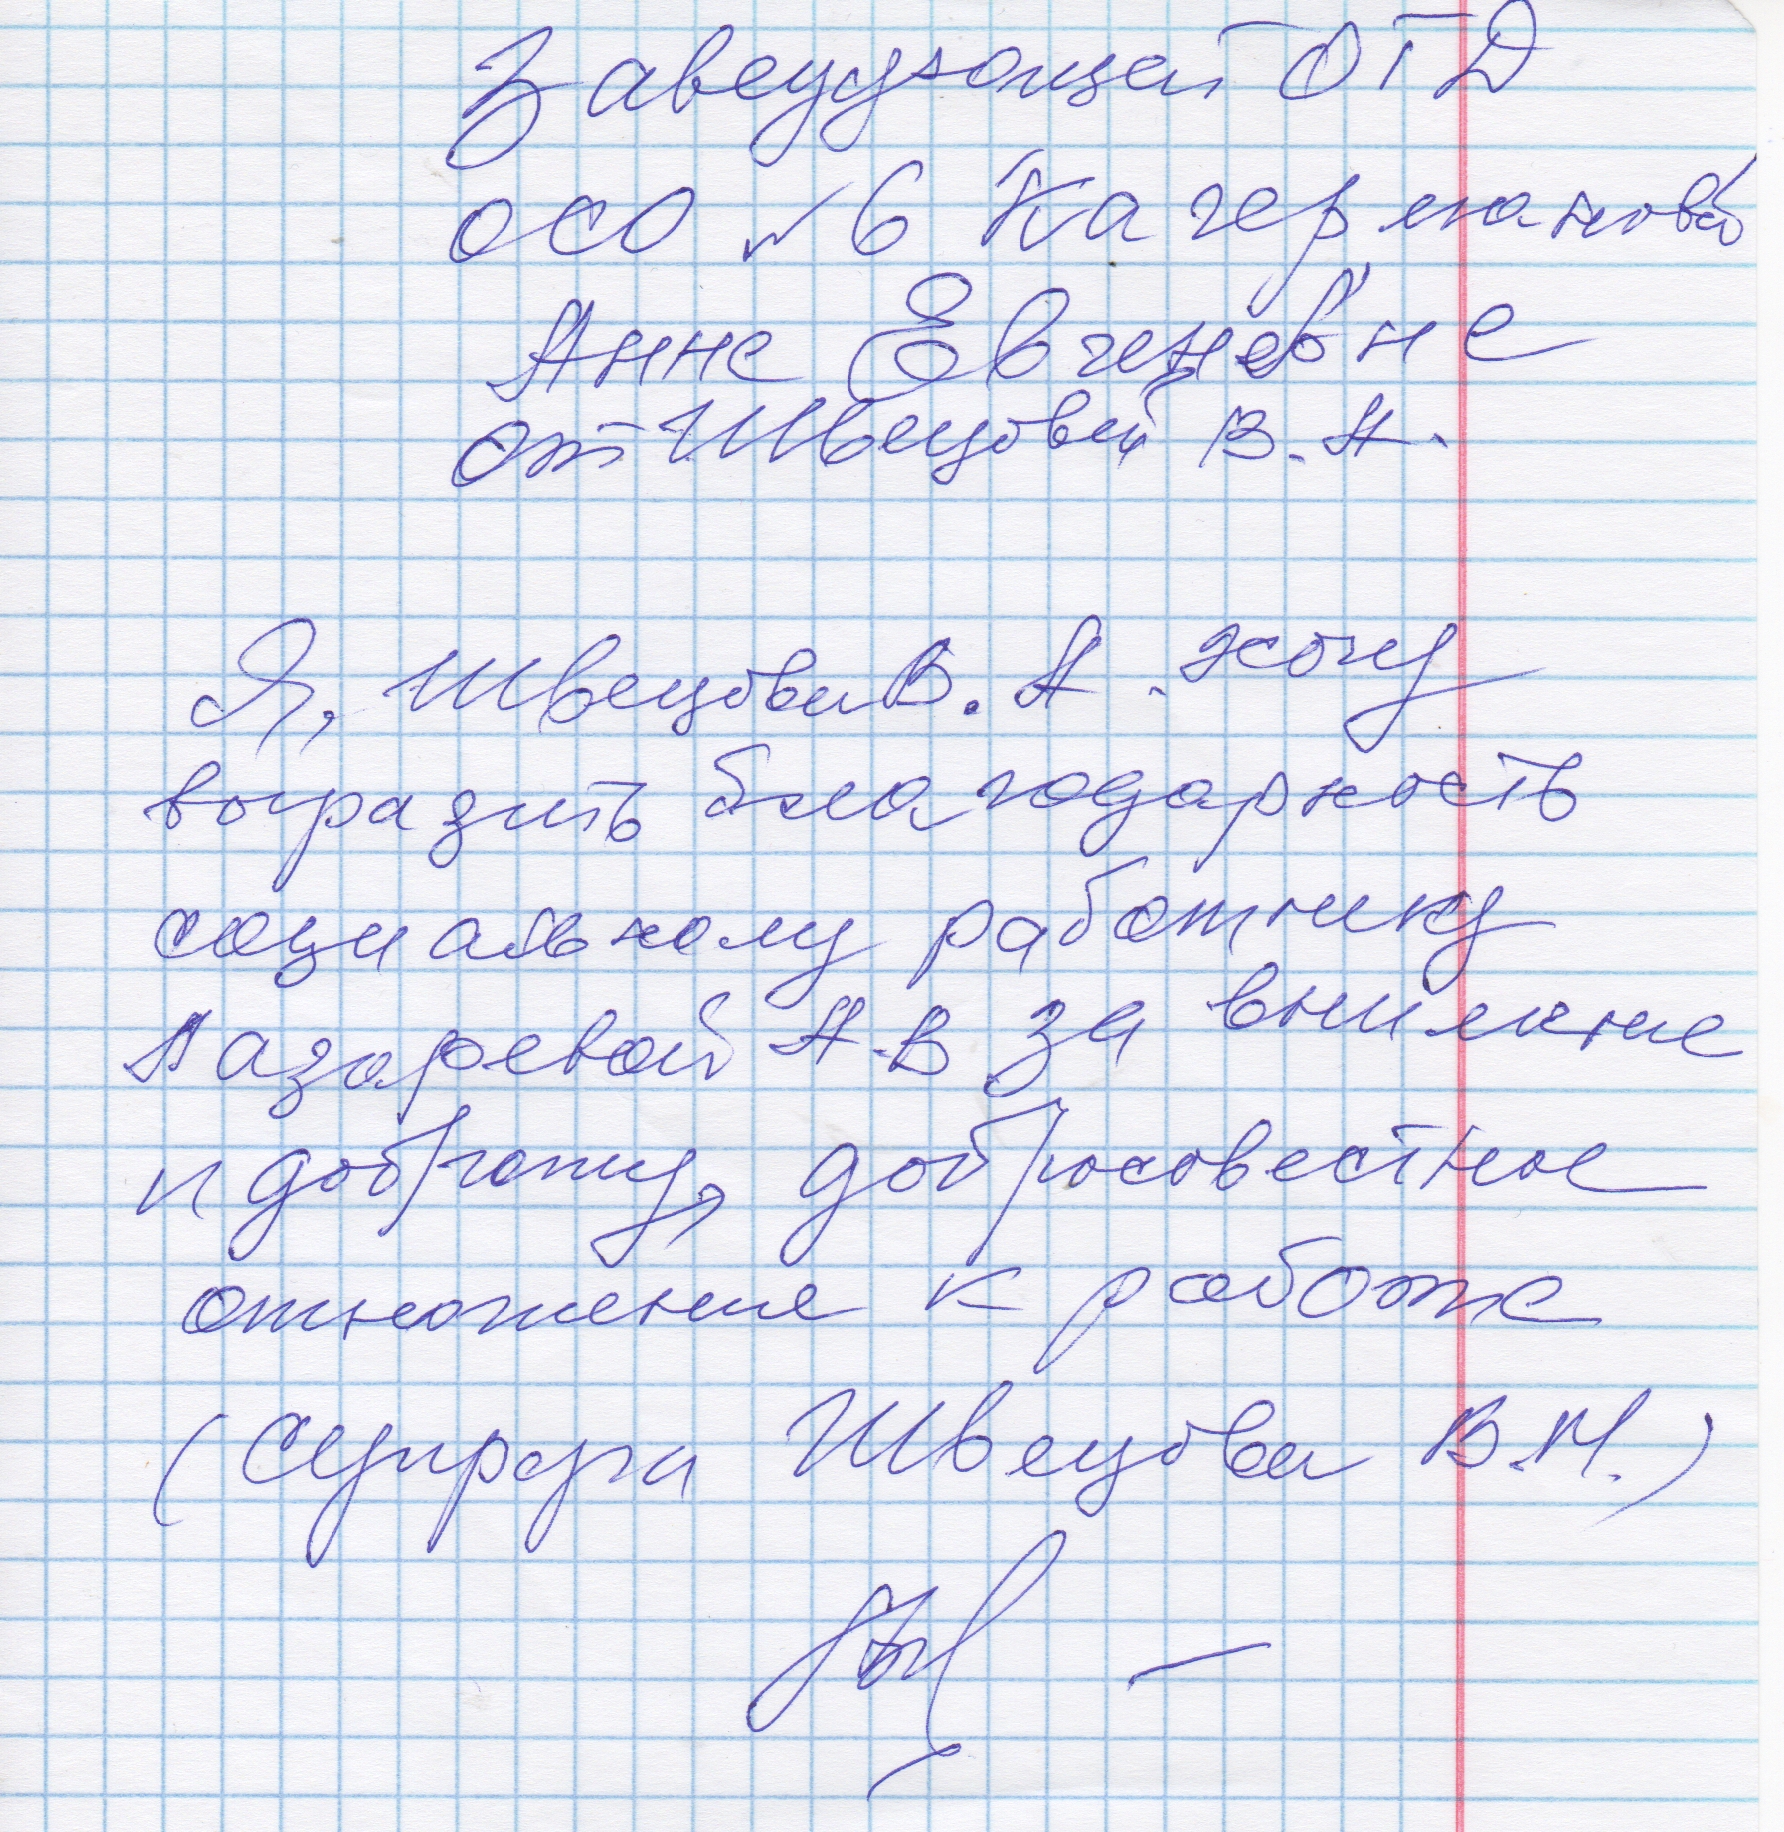 Заведующей ОТД
ОСО №6 Кагермановой
Анне Евгеневне
от Швецовой В.А.
Я, Швецова В.А. хочу
выразить благодарность
социальному работнику
Лазаревой А.В за внимание
и доброту, добросовестное
отношение к работе
(супруга Швецова В.М.)